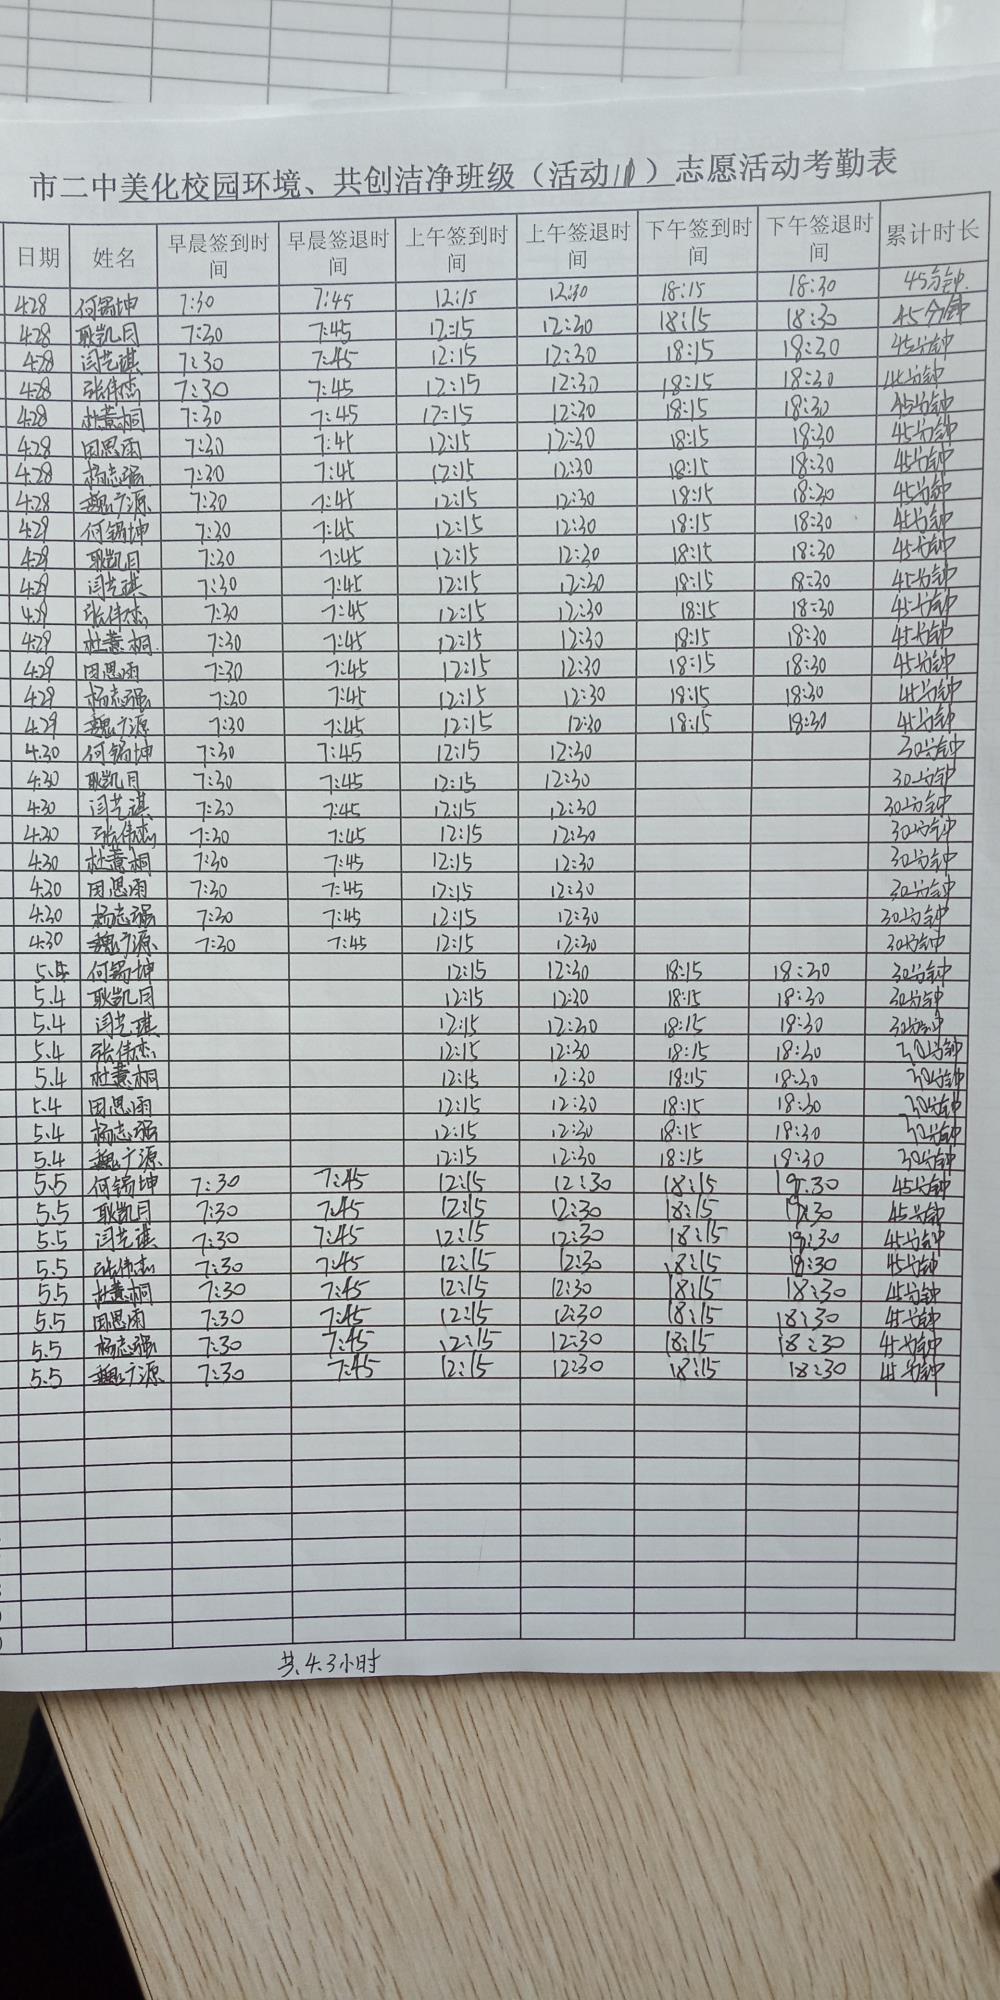 市二中美化校园环境、共创洁净班级（活动）志愿活动考勤表
日期 姓名 早晨签到时间 早晨签退时间 上午签到时间 上午签退时间 下午签到时间 下午签退时间 累计时长
4.28 何锡坤 7:30 7:45 12:15 12:30 18:15 18:30 45分钟
4.28 耿凯月 7:30 7:45 12:15 12:30 18:15 18:30 45分钟
4.28 闫艺琪 7:30 7:45 12:15 12:30 18:15 18:30 45分钟
4.28 张伟杰 7:30 7:45 12:15 12:30 18:15 18:30 45分钟
4.28 杜慧桐 7:30 7:45 12:15 12:30 18:15 18:30 45分钟
4.28 田思雨 7:30 7:45 12:15 12:30 18:15 18:30 45分钟
4.28 杨志强 7:30 7:45 12:15 12:30 18:15 18:30 45分钟
4.28 魏广源 7:30 7:45 12:15 12:30 18:15 18:30 45分钟
4.29 何锡坤 7:30 7:45 12:15 12:30 18:15 18:30 45分钟
4.29 耿凯月 7:30 7:45 12:15 12:30 18:15 18:30 45分钟
4.29 闫艺琪 7:30 7:45 12:15 12:30 18:15 18:30 45分钟
4.29 张伟杰 7:30 7:45 12:15 12:30 18:15 18:30 45分钟
4.29 杜慧桐 7:30 7:45 12:15 12:30 18:15 18:30 45分钟
4.29 田思雨 7:30 7:45 12:15 12:30 18:15 18:30 45分钟
4.29 杨志强 7:30 7:45 12:15 12:30 18:15 18:30 45分钟
4.29 魏广源 7:30 7:45 12:15 12:30 18:15 18:30 45分钟
4.30 何锡坤 7:30 7:45 12:15 12:30 30分钟
4.30 耿凯月 7:30 7:45 12:15 12:30 30分钟
4.30 闫艺琪 7:30 7:45 12:15 12:30 30分钟
4.30 张伟杰 7:30 7:45 12:15 12:30 30分钟
4.30 杜慧桐 7:30 7:45 12:15 12:30 30分钟
4.30 田思雨 7:30 7:45 12:15 12:30 30分钟
4.30 杨志强 7:30 7:45 12:15 12:30 30分钟
4.30 魏广源 7:30 7:45 12:15 12:30 30分钟
5.4 何锡坤 12:15 12:30 18:15 18:30 30分钟
5.4 耿凯月 12:15 12:30 18:15 18:30 30分钟
5.4 闫艺琪 12:15 12:30 18:15 18:30 30分钟
5.4 张伟杰 12:15 12:30 18:15 18:30 30分钟
5.4 杜慧桐 12:15 12:30 18:15 18:30 30分钟
5.4 田思雨 12:15 12:30 18:15 18:30 30分钟
5.4 杨志强 12:15 12:30 18:15 18:30 30分钟
5.4 魏广源 12:15 12:30 18:15 18:30 30分钟
5.5 何锡坤 7:30 7:45 12:15 12:30 18:15 19:30 45分钟
5.5 耿凯月 7:30 7:45 12:15 12:30 18:15 19:30 45分钟
5.5 闫艺琪 7:30 7:45 12:15 12:30 18:15 19:30 45分钟
5.5 张伟杰 7:30 7:45 12:15 12:30 18:15 19:30 45分钟
5.5 杜慧桐 7:30 7:45 12:15 12:30 18:15 18:30 45分钟
5.5 田思雨 7:30 7:45 12:15 12:30 18:15 18:30 45分钟
5.5 杨志强 7:30 7:45 12:15 12:30 18:15 18:30 45分钟
5.5 魏广源 7:30 7:45 12:15 12:30 18:15 18:30 45分钟
共4.3小时